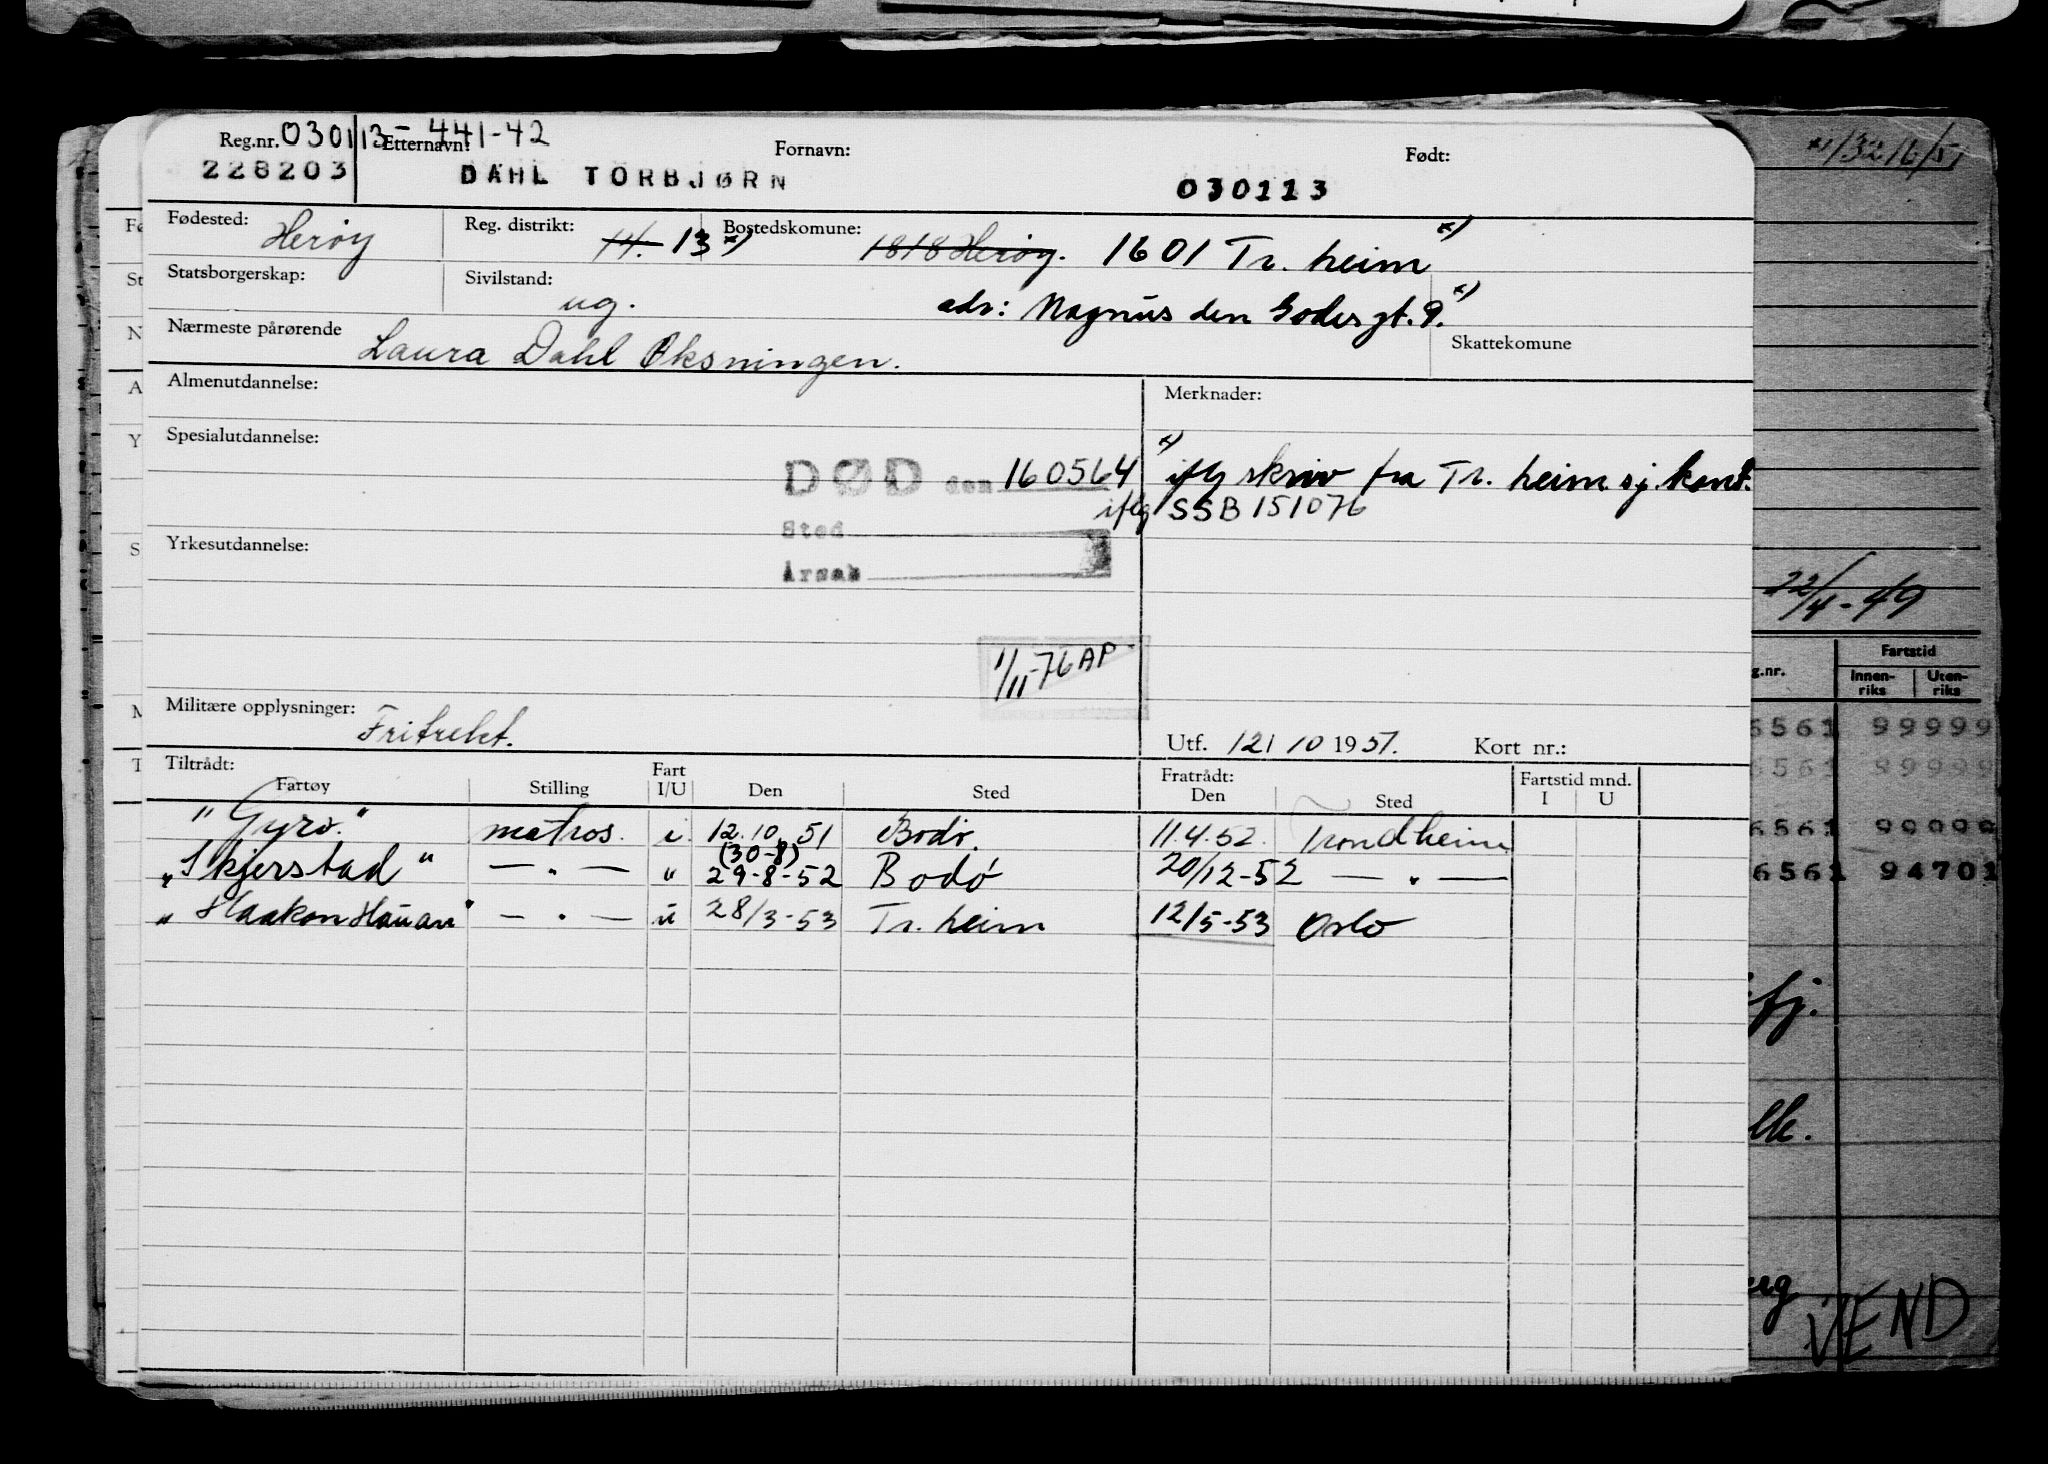 Reg.nr. 030113-441-42 Etternavn: Fornavn: Født:
228203 DAHL TORBJØRN 030113
Fødested: Herøy Reg. distrikt: 14. 13 x) Bostedskomune: 1818 Herøy. 1601 Tr. heim x)
Statsborgerskap: Sivilstand: ug. adr: Magnus den Godesgt. 9. x)
Nærmeste pårørende Laura Dahl Oksningen. Skattekomune
Almenutdannelse: Merknader:
Spesialutdannelse:
DØD den 160564 x) iflg skriv fra Tr. heim sj. kont.
iflg SSB 151076
Sted
Yrkesutdannelse:
Årsak
1/11-76 AP
Militære opplysninger: Fritrekt.
Utf. 12/10 1951. Kort nr.:
Tiltrådt: Fart Fratrådt: Fartstid mnd.
Fartøy Stilling I/U Den Sted Den Sted I U
"Gyro." matros. i. 12.10.51 Bodø. 11.4.52. Trondheim
(30-8)
"Skjerstad" — " — " 29-8-52 Bodó 20/12-52 — " —
"Haakon Hauan" — " — u 28/3-53 Tr. heim 12/5-53 Oslo
x)
22/4-49
g.nr. Fartstid
Innen-riks Uten-riks
6561 99999
6561 89999
6561 99999
6561 94701
fj.
lk.
ug
VEND